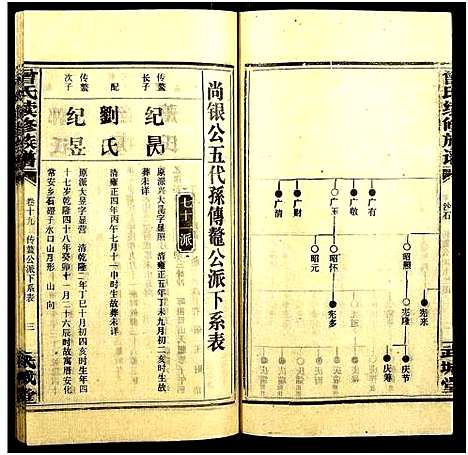 曾氏续修族譜
沙石
广有
广玉
广财
广清
昭照
昭怀
昭元
宪来
宪隆
宪多
庆节
庆筹
三
武城堂
尚银公五代孫傳鳌公派下系表
七十一派
传鳌长子
纪昺
原派兴大昺字显照 清雍正五年丁未九月初二亥时生故葬未详
配
劉氏
清雍正四年丙午七月十一申时生故葬未详
传鳌次子
纪昱
原派大昱字显营 清乾隆二年丁巳十月初四亥时生年四十七岁乾隆四十八年癸卯十一月二十六辰时故寓厝安化常安乡石磴子水口山月形 山 向
曾氏续修族譜
卷十九
传鳌公派下系表
三
武城堂